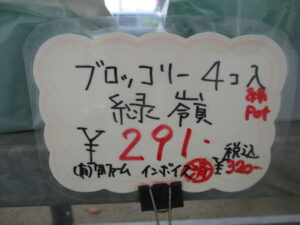 ブロッコリー 4コ入
緑嶺
Pot
¥291.
税込
¥320-
(有) ファーム インボイス 済